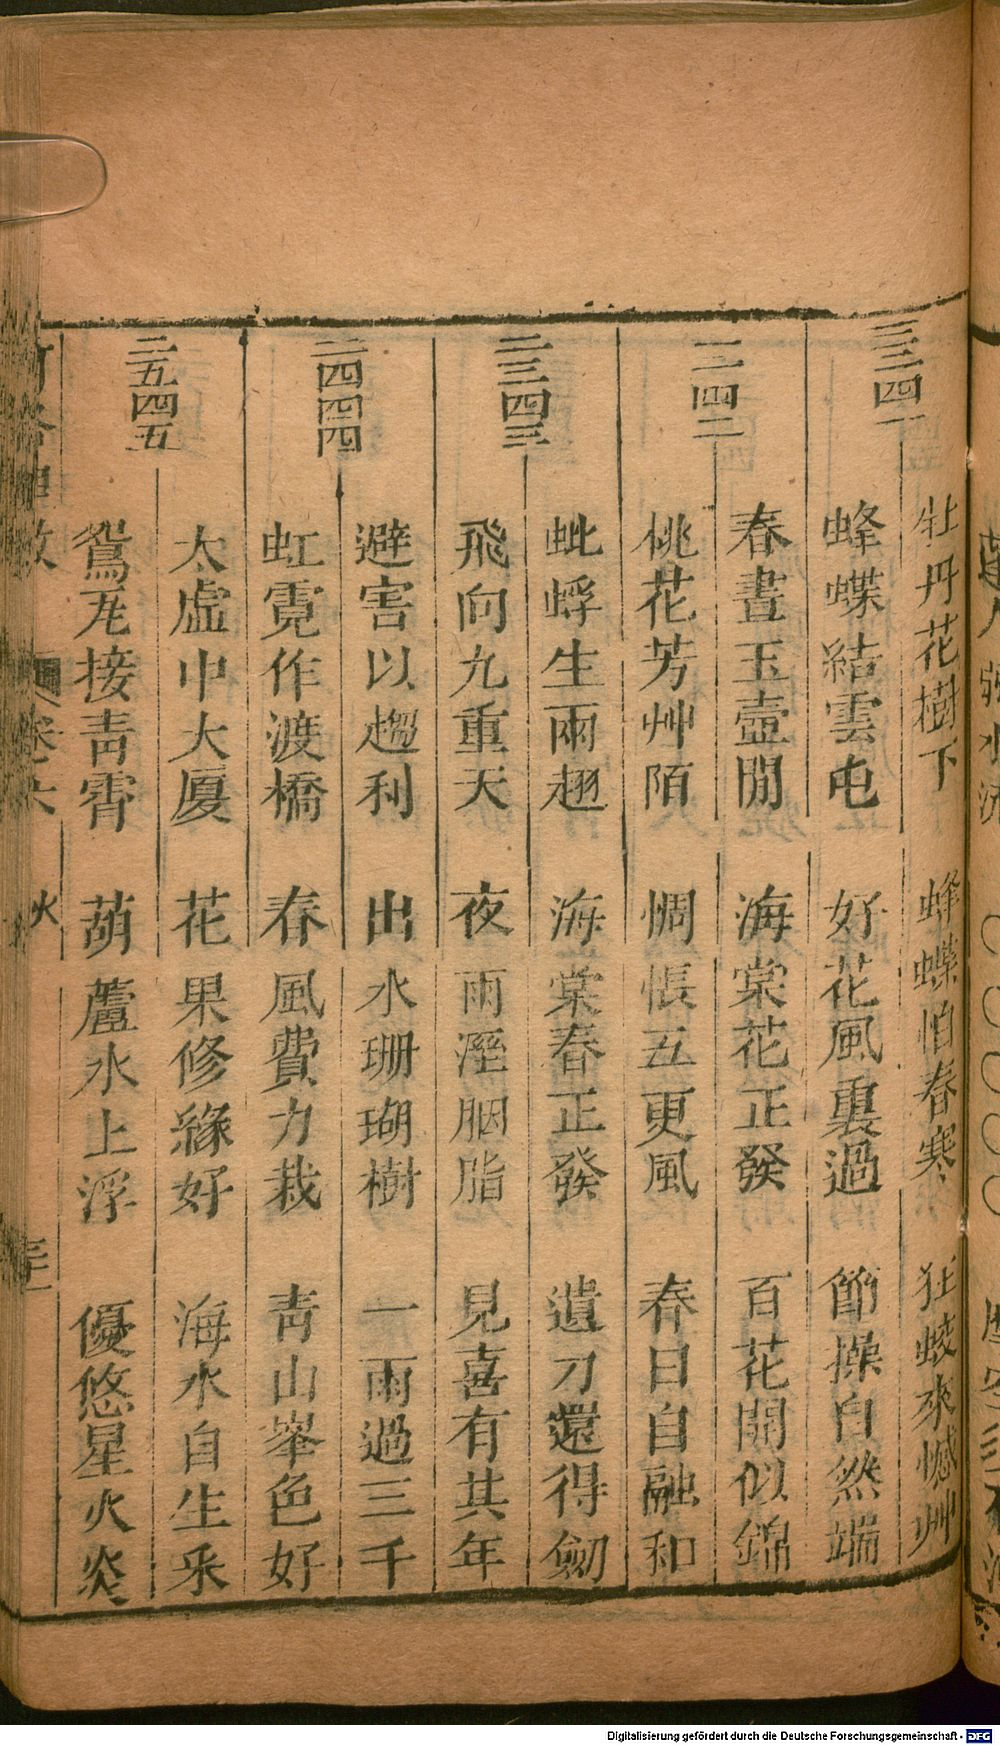 三三四一
牡丹花樹下 蜂蝶怕春寒 狂蛟來憾艸
蜂蝶結雲屯 好花風裏過 節操自然端
二一四二
春晝玉壼閒 海棠花正發 百花開似錦
桃花芳艸陌 惆悵五更風 春日自融和
二三四三
蚍蜉生兩趐 海棠春正發 遺刀還得劒
飛向九重天 夜雨溼胭脂 見喜有其年
二四四四
避害以趨利 出水珊瑚樹 一雨過三千
虹霓作渡橋 春風費力栽 青山峯色好
二五四五
太虛中大厦 花果修緣好 海水自生乑
鴛瓦接青霄 葫蘆水上浮 優悠星火炎
卷六 火
Digitalisierung gefördert durch die Deutsche Forschungsgemeinschaft - DFG